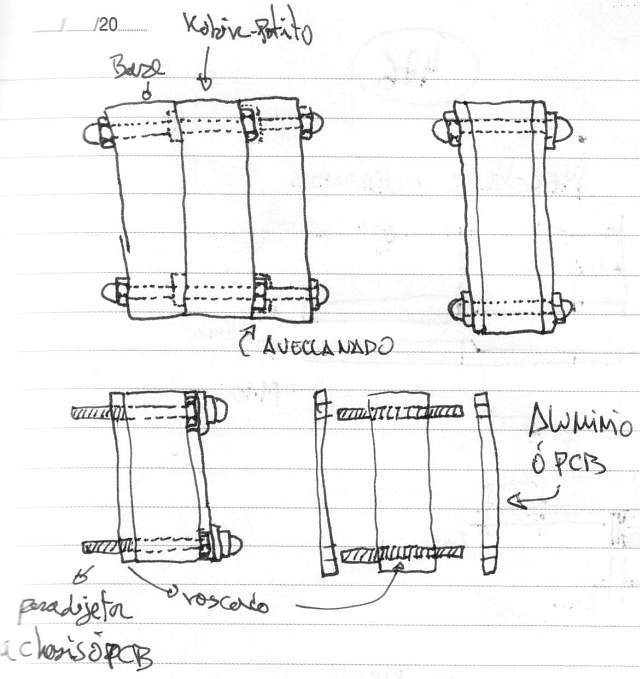 / /20
Base
ↄ AVELLANADO
ALUMINIO
Ó PCB
roscado
para sujetar
a chasis ó PCB